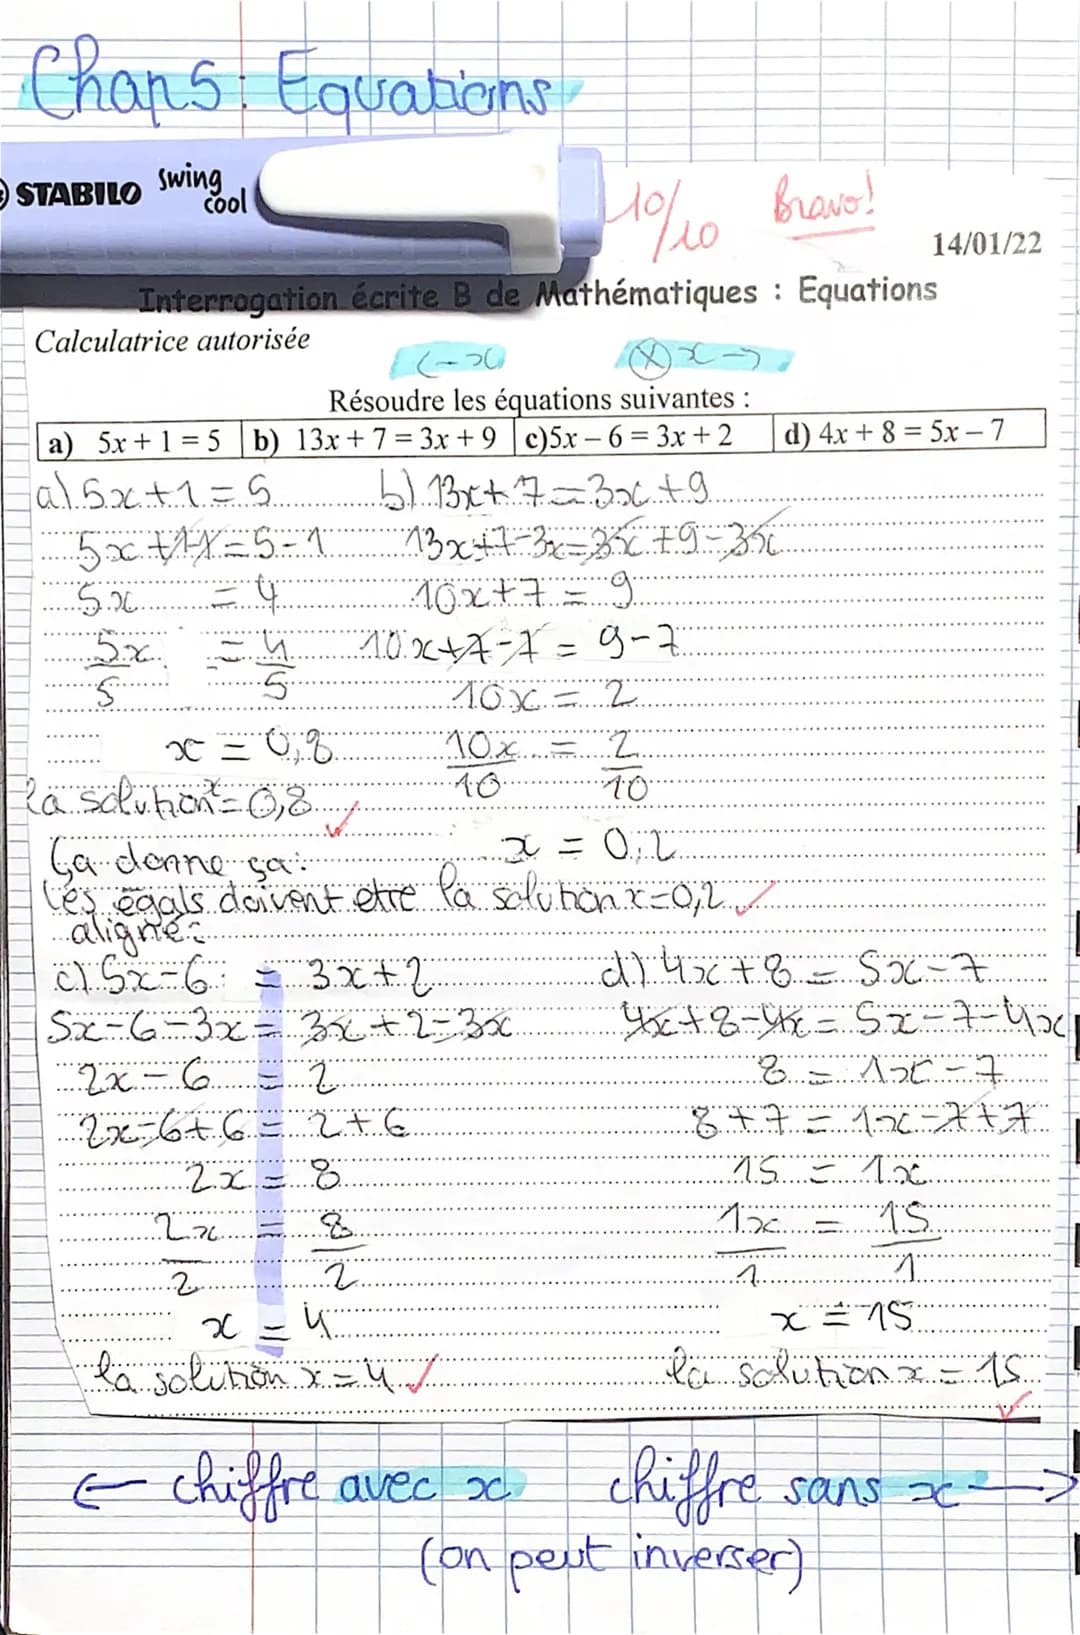 Chap 5 : Equations
STABILO swing cool
10/10 Bravo!
14/01/22
Interrogation écrite B de Mathématiques : Equations
Calculatrice autorisée
← x ⊗ x →
Résoudre les équations suivantes :
a) 5x + 1 = 5 b) 13x + 7 = 3x + 9 c)5x – 6 = 3x + 2 d) 4x + 8 = 5x – 7
a) 5x+1=5
5x+1-1=5-1
5x = 4
5x/5 = 4/5
x = 0,8
la solution x=0,8 ✓
b) 13x+7=3x+9
13x+7-3x=3x+9-3x
10x+7 = 9
10x+7-7 = 9-7
10x = 2
10x/10 = 2/10
x = 0,2
la solution x=0,2 ✓
Ça donne ça:
Les égals doivent etre
aligné:
c) 5x-6 = 3x+2
5x-6-3x = 3x+2-3x
2x-6 = 2
2x-6+6 = 2+6
2x = 8
2x/2 = 8/2
x = 4
la solution x=4 ✓
d) 4x+8 = 5x-7
4x+8-4x = 5x-7-4x
8 = 1x-7
8+7 = 1x-7+7
15 = 1x
1x/1 = 15/1
x = 15
la solution x = 15 ✓
← chiffre avec x chiffre sans x →
(on peut inverser)